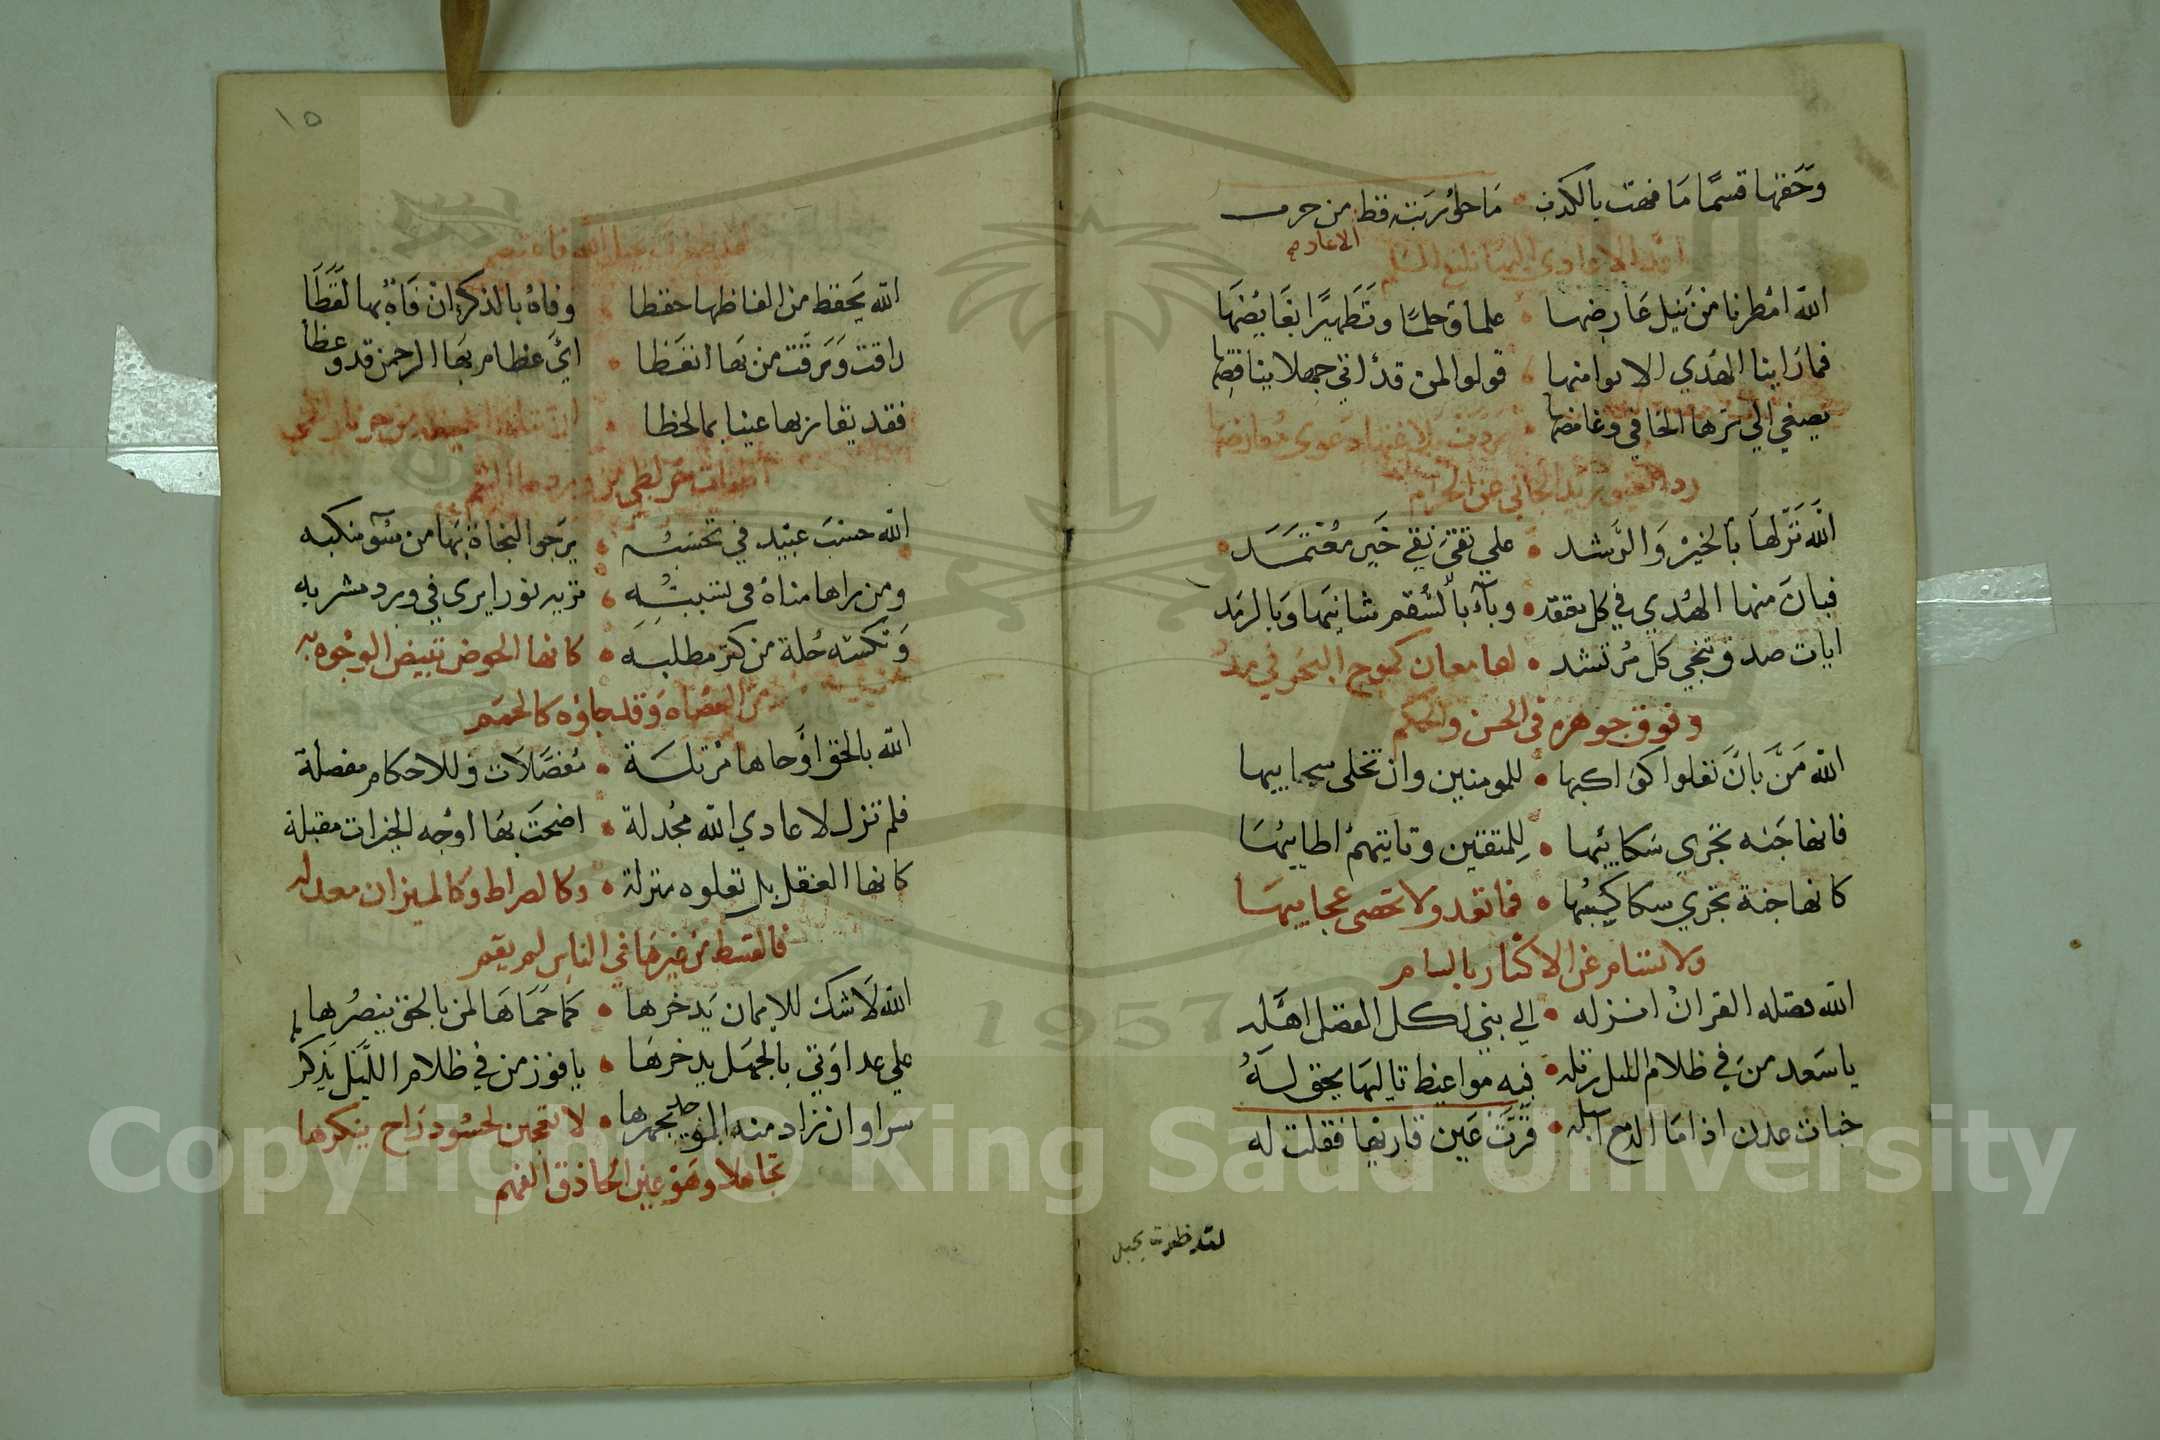 وَحَقها قسمًا مَا فهت بالكذب مَا حلىٔ ربَت قط من حرب
الاعادي
اعدا الاعادي اليها ملقي السلم
الله امْطرنا من نيل عَارضها علما وَحلمًا وتَطَهيرًا بغَايضَهَا
فما رَاينا الهُدي الا بوامنها قولوا لمن قدْ اتى جهلا يناقضها
يصغي الي سرّها الخافي وغامضها ردت بلاغتها دعوي معارضها
رد الغيور يد الجاني عن الحرم
الله نَزّلهَا بالخيْر وَالرَّشد علي تقي نقي خَير مُعْتمَد
فبانَ منها الهُدي في كل معتقد وبآءَ بالسُّقم شانيها وَبالرمَد
ايات صدق تنجي كل مُرتشد لها معان كموج البحر في مدد
وفوق جوهره في الحسن والحكم
الله مَنَّ بانَ تعلوا كوَاكبها للمومنين وان تخلى سحاييبها
فانها جَنه تجري سَكايبُها لِلمتقين وتاتيهمْ اطايبُهَا
كانها جنة تجري سكاكيبُها فما تعد ولا تحصى عجايبهَا
وَلا تسام عَن الاكثار بالسام
الله فصله القرانُ انزله الي نبي لكل الفضل اهَّله
يا سَعد منَ في ظلام الليل رتله فيه مواعيظ تاليهَا يحق لهُ
جنات عدن اذا مَا الدمع اسبله قرَّت عَين قاريها فقلت له
لقد ظفرت بحبل
١٥
لقد ظفرت بحبل الله فاعتصم
الله يَحفظ من الفاظها حفظا وفاهُ بالذكر انْ فَاهُ بها لَفَظَا
راقت وَرَقت من بهَا اتعَظا ايَّ عظام بهَا الرحمن قد وعظا
فقد يفاز بها عينا بما لحظا ان تتلها خيفة من حر نار لظي
اطفات حَر لظي من وردها الشبم
الله حسْبَ عبيْد في تحسّبُه يرَجوا النجاة بهَا من سُوٓ منكبه
ومن راها مناهُ في تسببُهِ تزيد نورا يرى في ورد مشربه
وَتكسه حُلة من كنز مطلبه كانها الحوض تبيض الوجُوه به
من العصُاه وَقد جاؤه كالحمَم
الله بالحق اوَحاها مُرتلة مفصَّلاَت وَللاحكام مفصلة
فلم تزل لاعادي الله مجُدلة اضحَت بهَا اوْجه الخيرات مقبلة
كانها العقل بل تعلوه منزلة وكالصراط وكالميزان معدله
فالقسط من غيرهَا في الناسِ لم يقم
الله لاَ شك للايمان يَدخرها كمَا حَمَاهَا لمن بالحق ينصُرها
علي عداوَتي بالجهَل يدخرهَا يا فوز من في ظلام اللَّيل يَذكرها
سرا وان زاد منه الموَجد يجهرها لا تعجبن لحسُود رَاح ينكرها
تجاهلا وهَوْ عين الحاذق الفهم